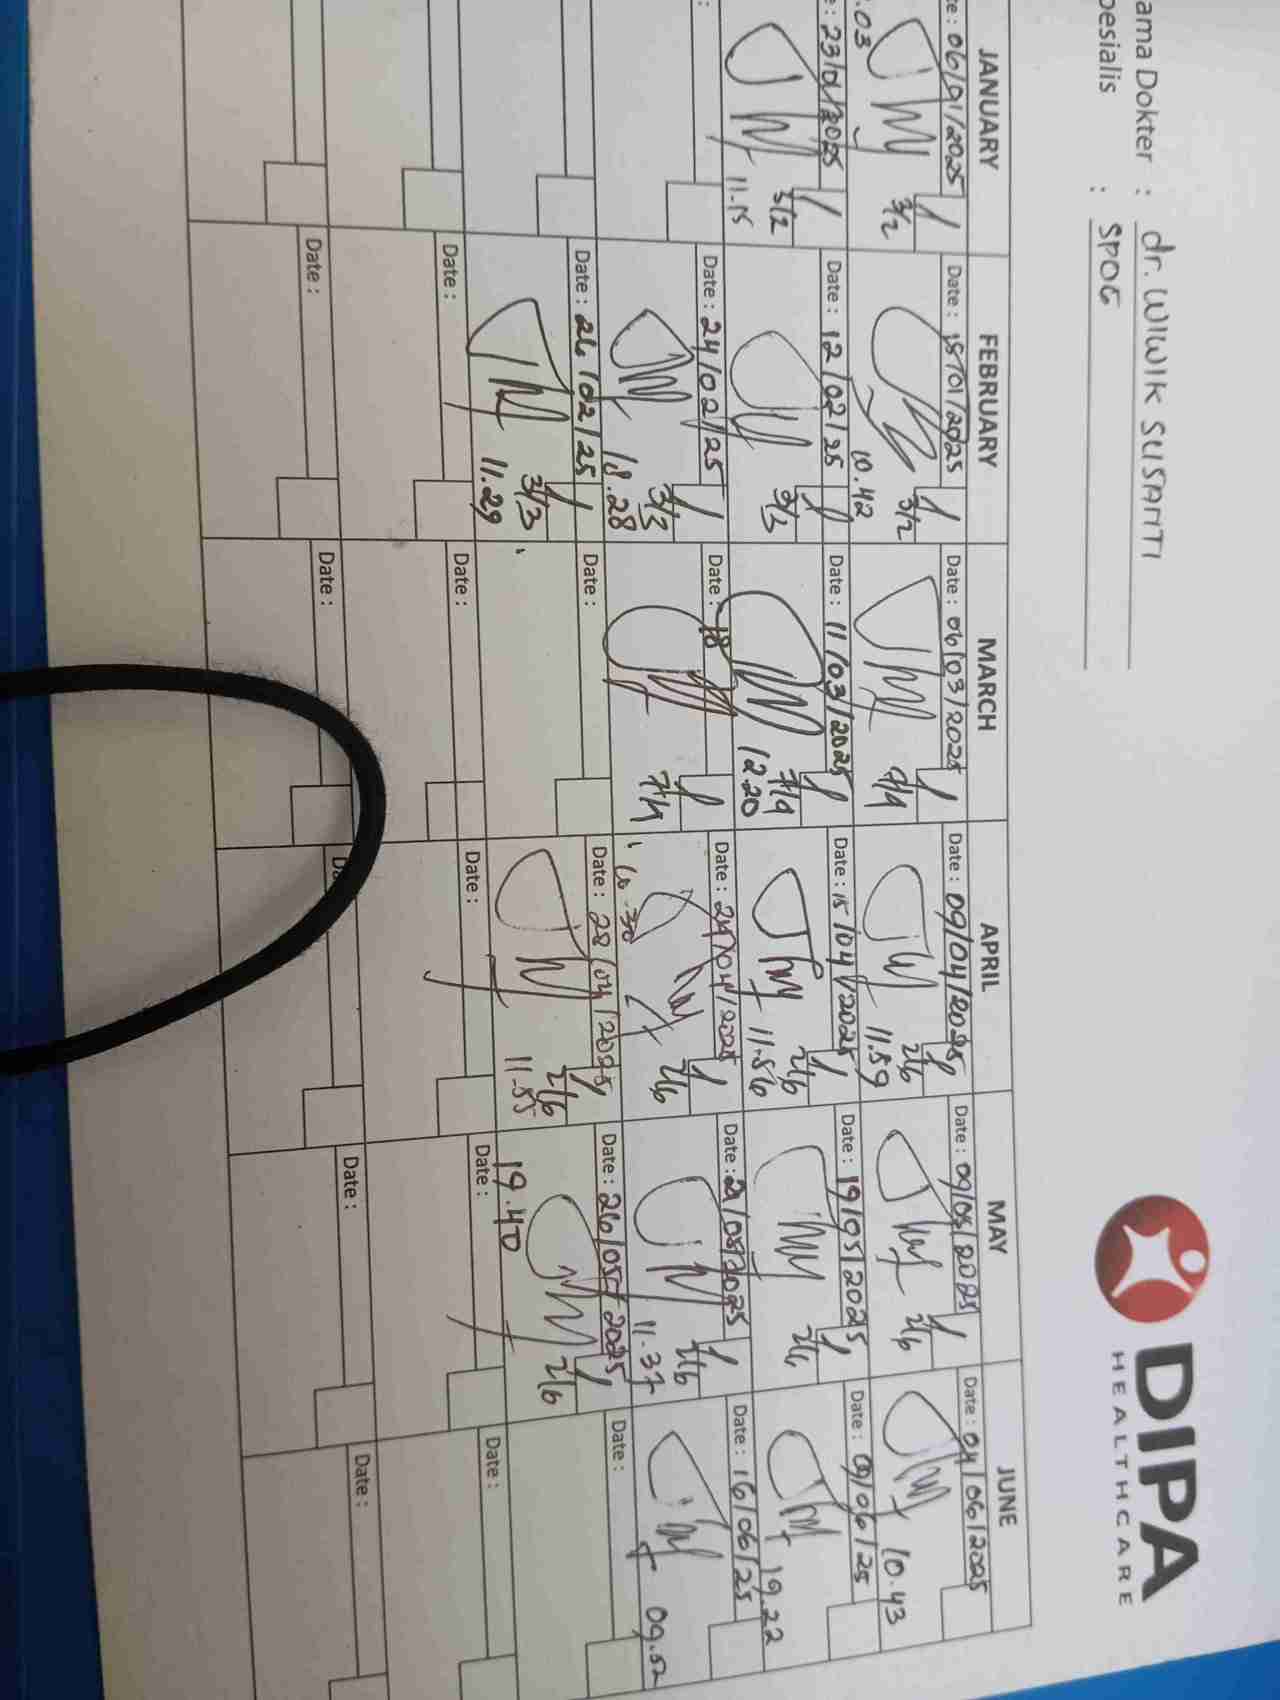 DIPA
HEALTHCARE
ama Dokter : dr. WIWIK SUSANTI
pesialis : SPOG
JANUARY FEBRUARY MARCH APRIL MAY JUNE
te : 06/01/2025 Date : 15/01/2025 Date : 06/03/2025 Date : 09/04/2025 Date : 09/05/2025 Date : 04/06/2025
3/2 3/2 7/4 2/6 2/6
.03 10.42 11.59 10.43
e : 23/01/2025 Date : 12/02/25 Date : 11/03/2025 Date : 15/04/2025 Date : 19/05/2025 Date : 09/06/25
3/2 3/3 7/4 2/6 2/6
11.15 12.20 11.56 19.22
: Date : 24/02/25 Date : 18 Date : 24/04/2025 Date : 21/05/2025 Date : 16/06/25
3/3 7/4 2/6 2/6
18.28 10.30 11.37 09.52
Date : 26/02/25 Date : Date : 28/04/2025 Date : 26/05/2025 Date :
3/3 2/6 2/6
11.29 11.55 19.40
Date : Date : Date : Date : Date :
Date : Date : Da Date : Date :